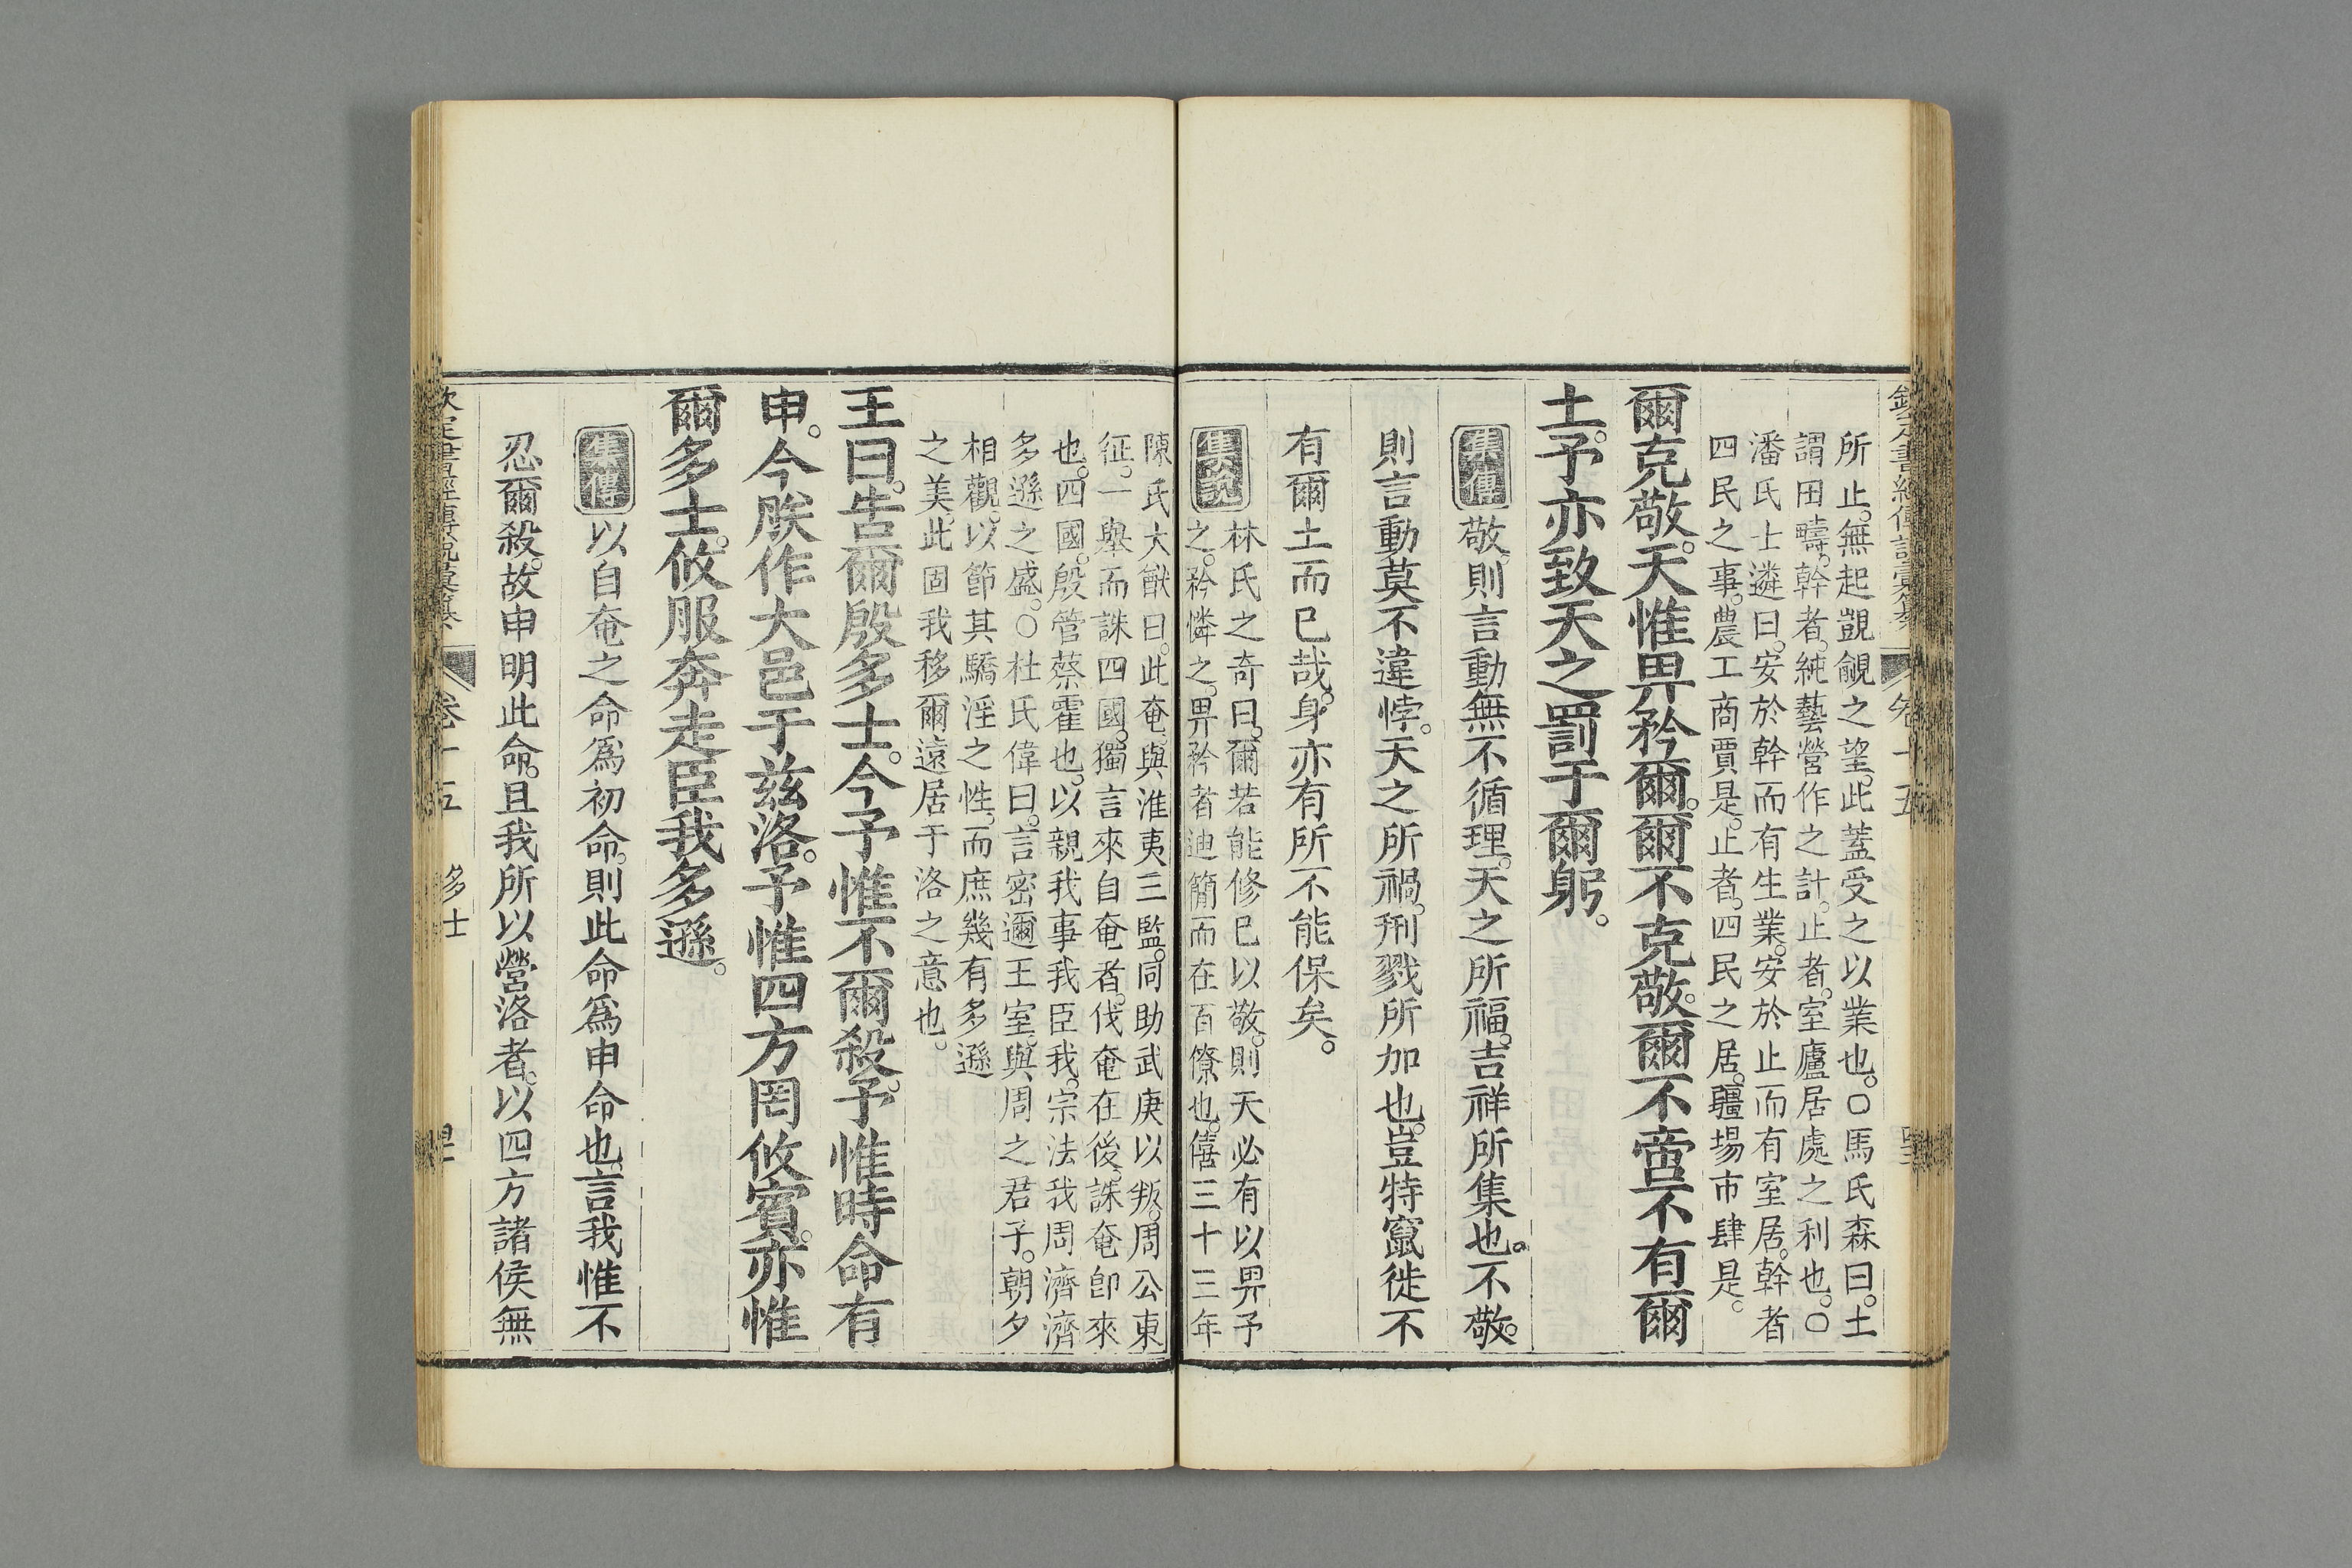 所止。無起覬覦之望。此蓋受之以業也。○馬氏森曰。土
謂田疇。幹者。純藝營作之計。止者。室廬居處之利也。○
潘氏士遴曰。安於幹而有生業。安於止而有室居。幹者
四民之事。農工商賈是。止者。四民之居。疆場市肆是。
爾克敬。天惟畀矜爾。爾不克敬。爾不啻不有爾
土。予亦致天之罰于爾躬。
集傳 敬。則言動無不循理。天之所福。吉祥所集也。不敬。
則言動莫不違悖。天之所禍。刑戮所加也。豈特竄徙不
有爾土而已哉。身亦有所不能保矣。
集說 林氏之奇曰。爾若能修已以敬。則天必有以畀予
之。矜憐之。畀矜者迪簡而在百僚也。僖三十三年
陳氏大猷曰。此奄與淮夷三監。同助武庚以叛。周公東
征。一舉而誅四國。獨言來自奄者。伐奄在後。誅奄卽來
也。四國。殷管蔡霍也。以親我事我臣我。宗法我周濟濟
多遜之盛。○杜氏偉曰。言密邇王室。與周之君子。朝夕
相觀。以節其驕淫之性。而庶幾有多遜
之美。此固我移爾遠居于洛之意也。
王曰。告爾殷多士。今予惟不爾殺。予惟時命有
申。今朕作大邑于兹洛。予惟四方罔攸賓。亦惟
爾多士。攸服奔走臣我多遜。
集傳 以自奄之命爲初命。則此命爲申命也。言我惟不
忍爾殺。故申明此命。且我所以營洛者。以四方諸侯無
卷十五 多士